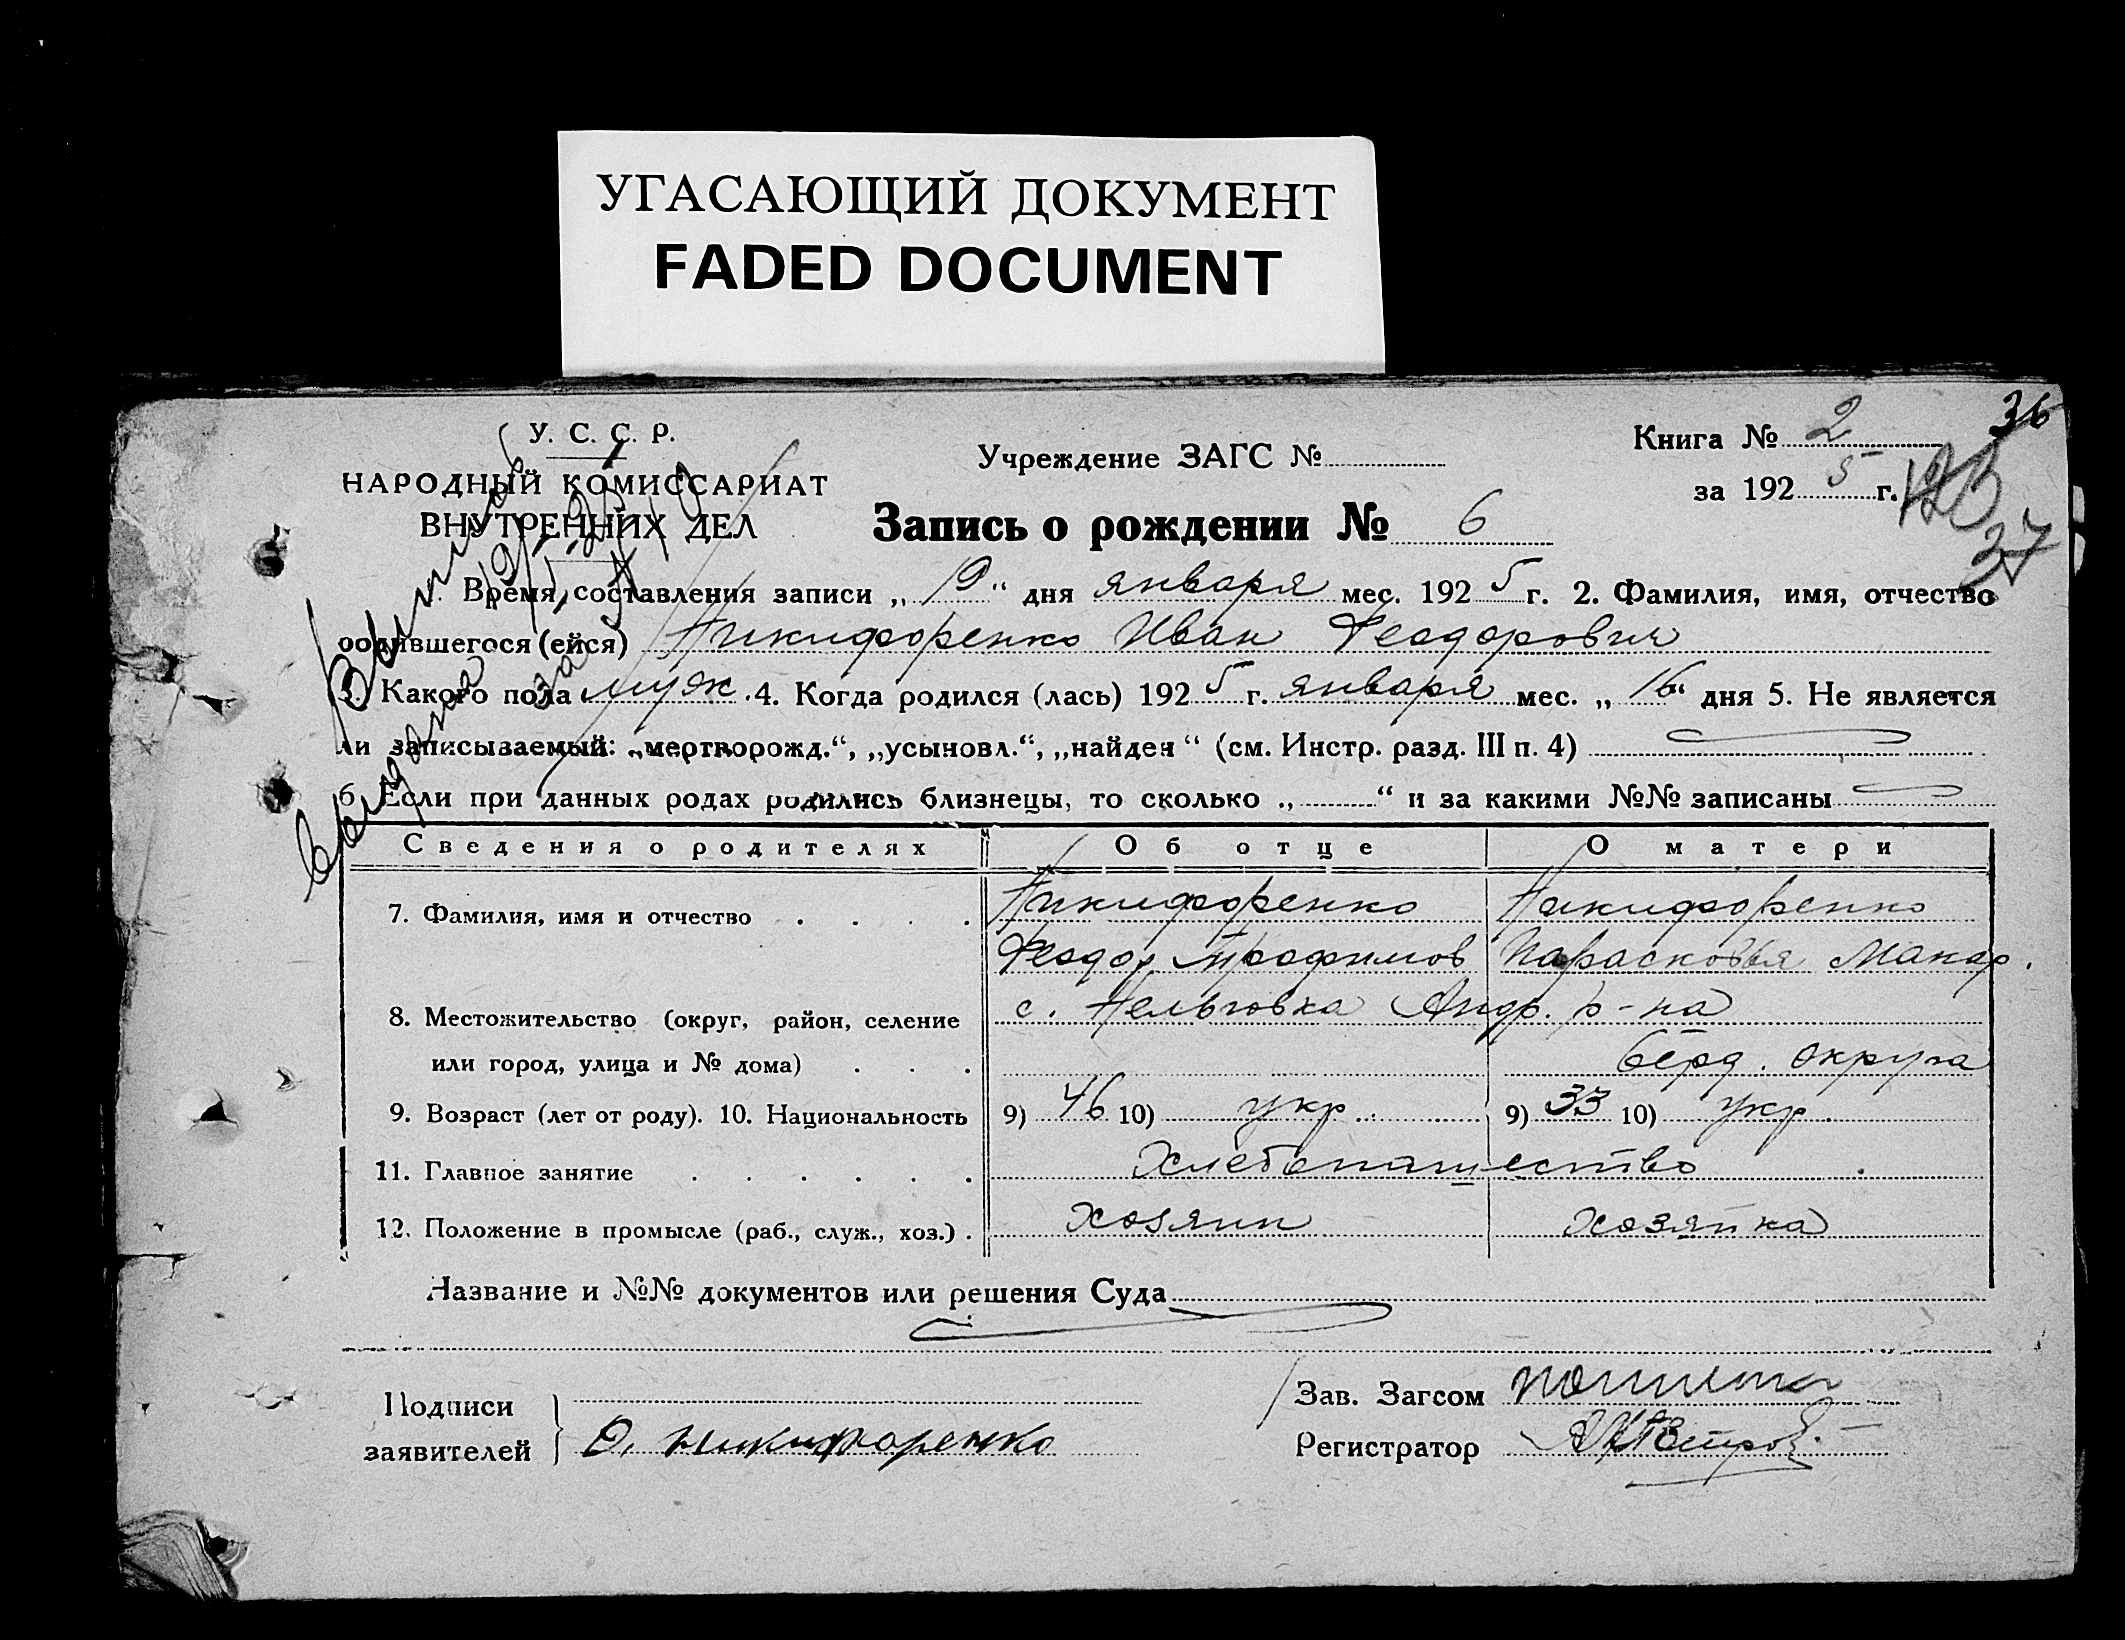 УГАСАЮЩИЙ ДОКУМЕНТ
FADED DOCUMENT
36
У. С. С. Р.
НАРОДНЫЙ КОМИССАРИАТ
ВНУТРЕННИХ ДЕЛ
Учреждение ЗАГС №
Книга № 2
за 192 5 г.
27
Запись о рождении № 6
Выпись
выдана
Время составления записи „ 19 “ дня января мес. 192 5 г. 2. Фамилия, имя, отчество
родившегося (ейся) Никифоренко Иван Феодорович
3. Какого пола муж. 4. Когда родился (лась) 192 5 г. января мес. „ 16 “ дня 5. Не является
ли записываемый: „мертворожд.“, „усыновл.“, „найден“ (см. Инстр. разд. III п. 4)
6 Если при данных родах родились близнецы, то сколько „ “ и за какими №№ записаны
Сведения о родителях Об отце О матери
7. Фамилия, имя и отчество Никифоренко Никифоренко
Феодор Трофимов Парасковья Макар.
8. Местожительство (округ, район, селение с. Нельговка Андр. р-на
или город, улица и № дома) Берд. округа
9. Возраст (лет от роду). 10. Национальность 9) 46 10) укр. 9) 33 10) укр.
11. Главное занятие Хлебопашество
12. Положение в промысле (раб., служ., хоз.) хозяин хозяйка
Название и №№ документов или решения Суда
Подписи
заявителей Ф. Никифоренко
Зав. Загсом
Регистратор